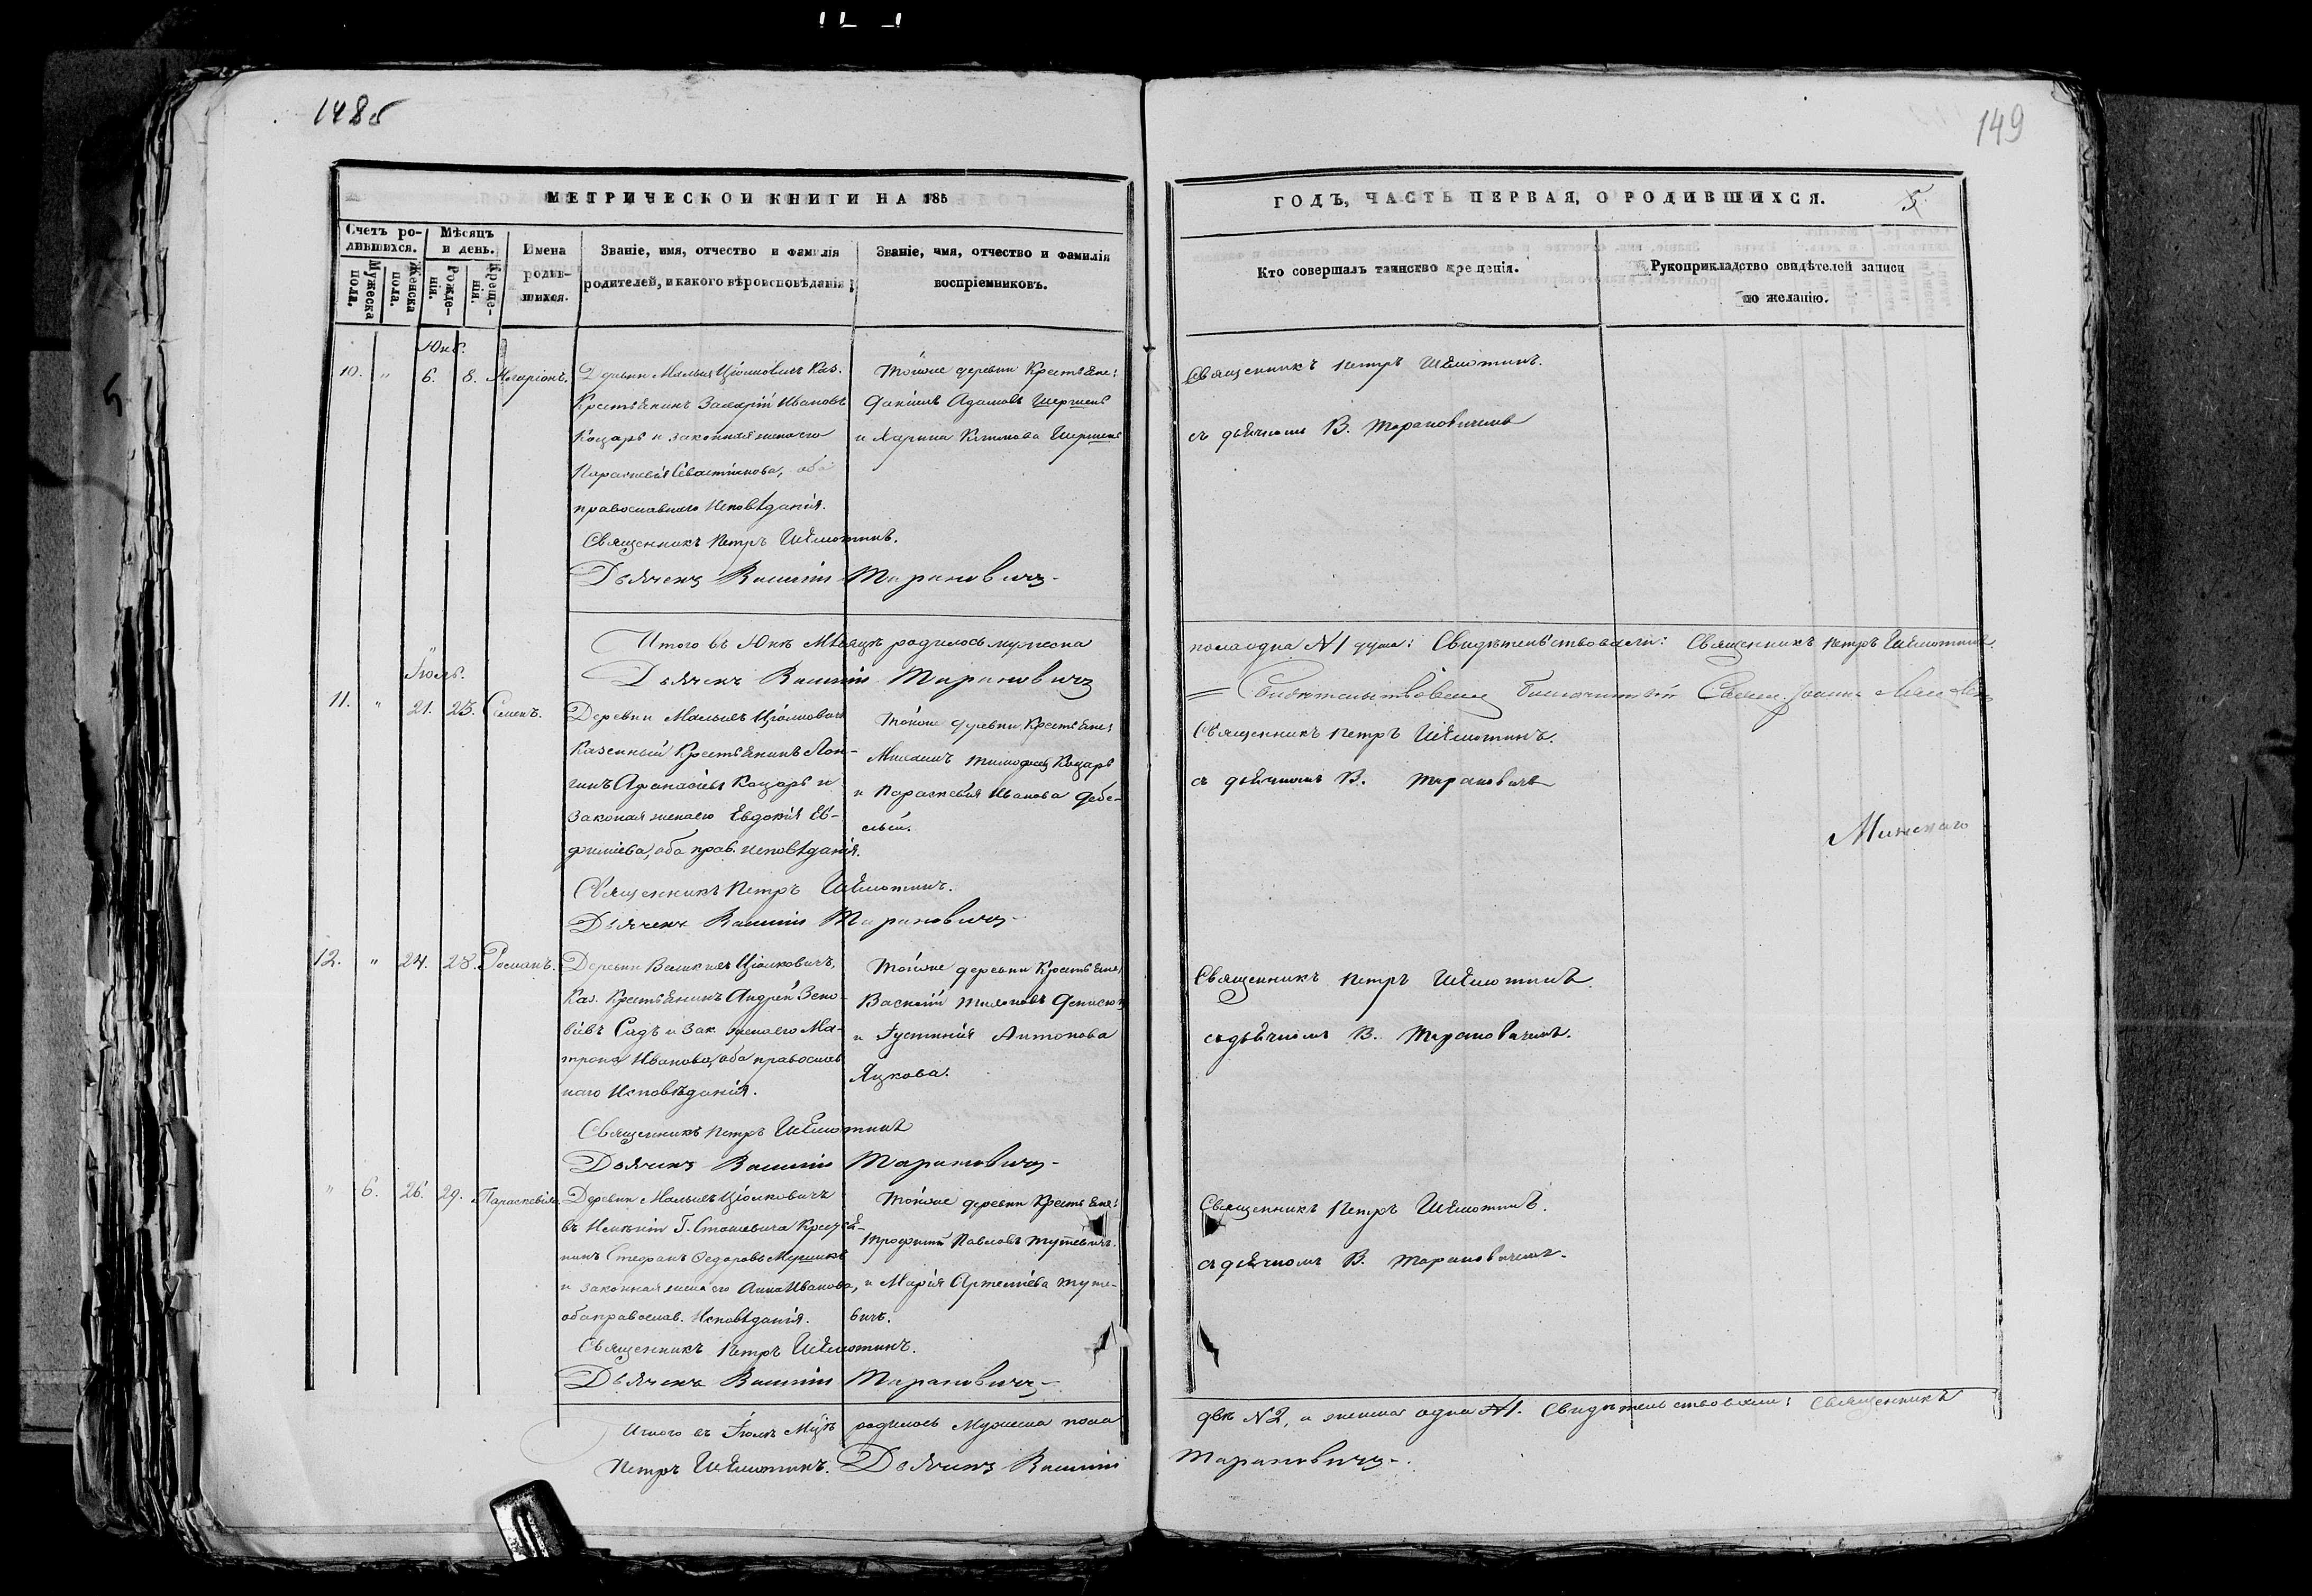 148б
149
МЕТРИЧЕСКОЙ КНИГИ НА 185
ГОДЪ, ЧАСТЬ ПЕРВАЯ, О РОДИВШИХСЯ.
5
Счетъ родившихся.
Мужеска пола.
Женска пола.
Мѣсяцъ и день.
Рожденія.
Крещенія.
Имена родившихся.
Званіе, имя, отчество и фамилія
родителей, и какого вѣроисповѣданія
Званіе, имя, отчество и фамилія
воспріемниковъ.
Кто совершалъ таинство крещенія.
Рукоприкладство свидѣтелей записи
по желанію.
10. " 6. 8. Иларіонъ.
Деревни Малыхъ Ціолковичъ Каз.
Крестьянинъ Ивановъ
Коцаръ и законная жена его
Параскевія Севастіянова, оба
православнаго Исповѣданія.
Тойже деревни Крестьяне:
Даніилъ Адамовъ Шершень
и Марина Климова Шершень
Священникъ Петръ
Дьячекъ Василій Тарановичъ
Священникъ Петръ
съ дьячкомъ В. Тарановичемъ
Итого въ Юнѣ Мѣсяцѣ родилось мужеска
пола одна №1 душа: Свидѣтельствовали: Священникъ Петръ
Дьячекъ Василій Тарановичъ
Іюль.
11. " 21. 25. Семенъ.
Деревни Малыхъ Ціолковичъ
Казенный Крестьянинъ Лон-
гинъ Афанасіевъ Коцаръ и
законая жена его Евдокія Ев-
фиміева, оба прав. исповѣданія.
Тойже деревни Крестьяне:
Михаилъ Тимофеевъ Коцаръ
и Параскевія Иванова
Священникъ Петръ
Дьячекъ Василій Тарановичъ
Священникъ Петръ
съ дьячкомъ В. Тарановичемъ
Минскаго
12. " 24. 28. Романъ.
Деревни Великихъ Ціолковичъ,
Каз. Крестьянинъ Андрей Зено-
віевъ Садъ и зак. жена его Ма-
трона Иванова, оба православ
наго Исповѣданія.
Тойже деревни Крестьяне
Василій Денисюкъ
и Іустинія Антонова
Яцкова.
Священникъ Петръ
Дьячекъ Василій Тарановичъ
Священникъ Петръ
съ дьячкомъ В. Тарановичемъ.
" 6. 26. 29. Параскевія.
Деревни Малыхъ Ціолковичъ
въ Имѣніи Г. Сташевича Крестья-
нинъ Стефанъ Федоровъ
и законная жена его Анна Иванова,
оба православ. Исповѣданія.
Тойже деревни Крестьяне:
Трофимъ Павловъ Тутевичъ
и Марія Артеміева Туте-
вичъ.
Священникъ Петръ
Дьячекъ Василій Тарановичъ
Священникъ Петръ
съ дьячкомъ В. Тарановичемъ.
Итого въ Іюлѣ Мцѣ родилось Мужеска пола
двѣ №2, и женска одна №1. Свидѣтельствовали: Священникъ
Петръ Дьячекъ Василій
Тарановичъ